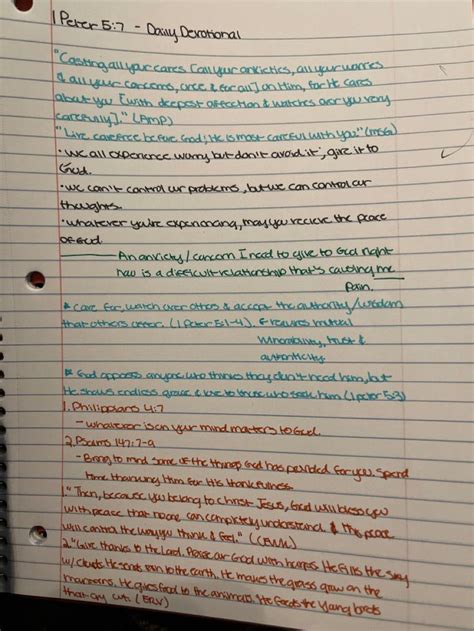 1 Peter 5:7 - Daily Devotional
"Casting all your cares [all your anxieties, all your worries
& all your concerns, once & for all] on Him, for He cares
about you [with deepest affection & watches over you very
carefully]." (AMP)
"Live carefree before God; He is most careful with you." (MSG)
• we all experience worry, but don't avoid it, give it to
God.
• we can't control our problems, but we can control our
thoughts.
• whatever you're experiencing, may you recieve the peace
of God.
An anxiety/concern I need to give to God right
now is a difficult relationship that's causing me
pain.
* Care for, watch over others & accept the authority/wisdom
that others offer. (1 Peter 5:1-4). requires mutual
vulnerability, trust &
authenticity
* God opposes anyone who thinks they don't need him, but
He shows endless grace & love to those who seek him (1 Peter 5:3)
1. Philippians 4:7
- whatever is on your mind matters to God.
2. Psalms 147:7-9
- Bring to mind some of the things God has provided for you. Spend
time thanking Him for His thankfulness
1. "Then, because you belong to Christ Jesus, God will bless you
with peace that no one can completely understand. & this peace
will control the way you think & feel." (CEV)
2. "Give thanks to the Lord. Praise our God with harps. He fills the sky
w/ clouds. He sends rain to the earth. He makes the grass grow on the
mountains. He gives food to the animals. He feeds the young birds
that cry out. (ERV)